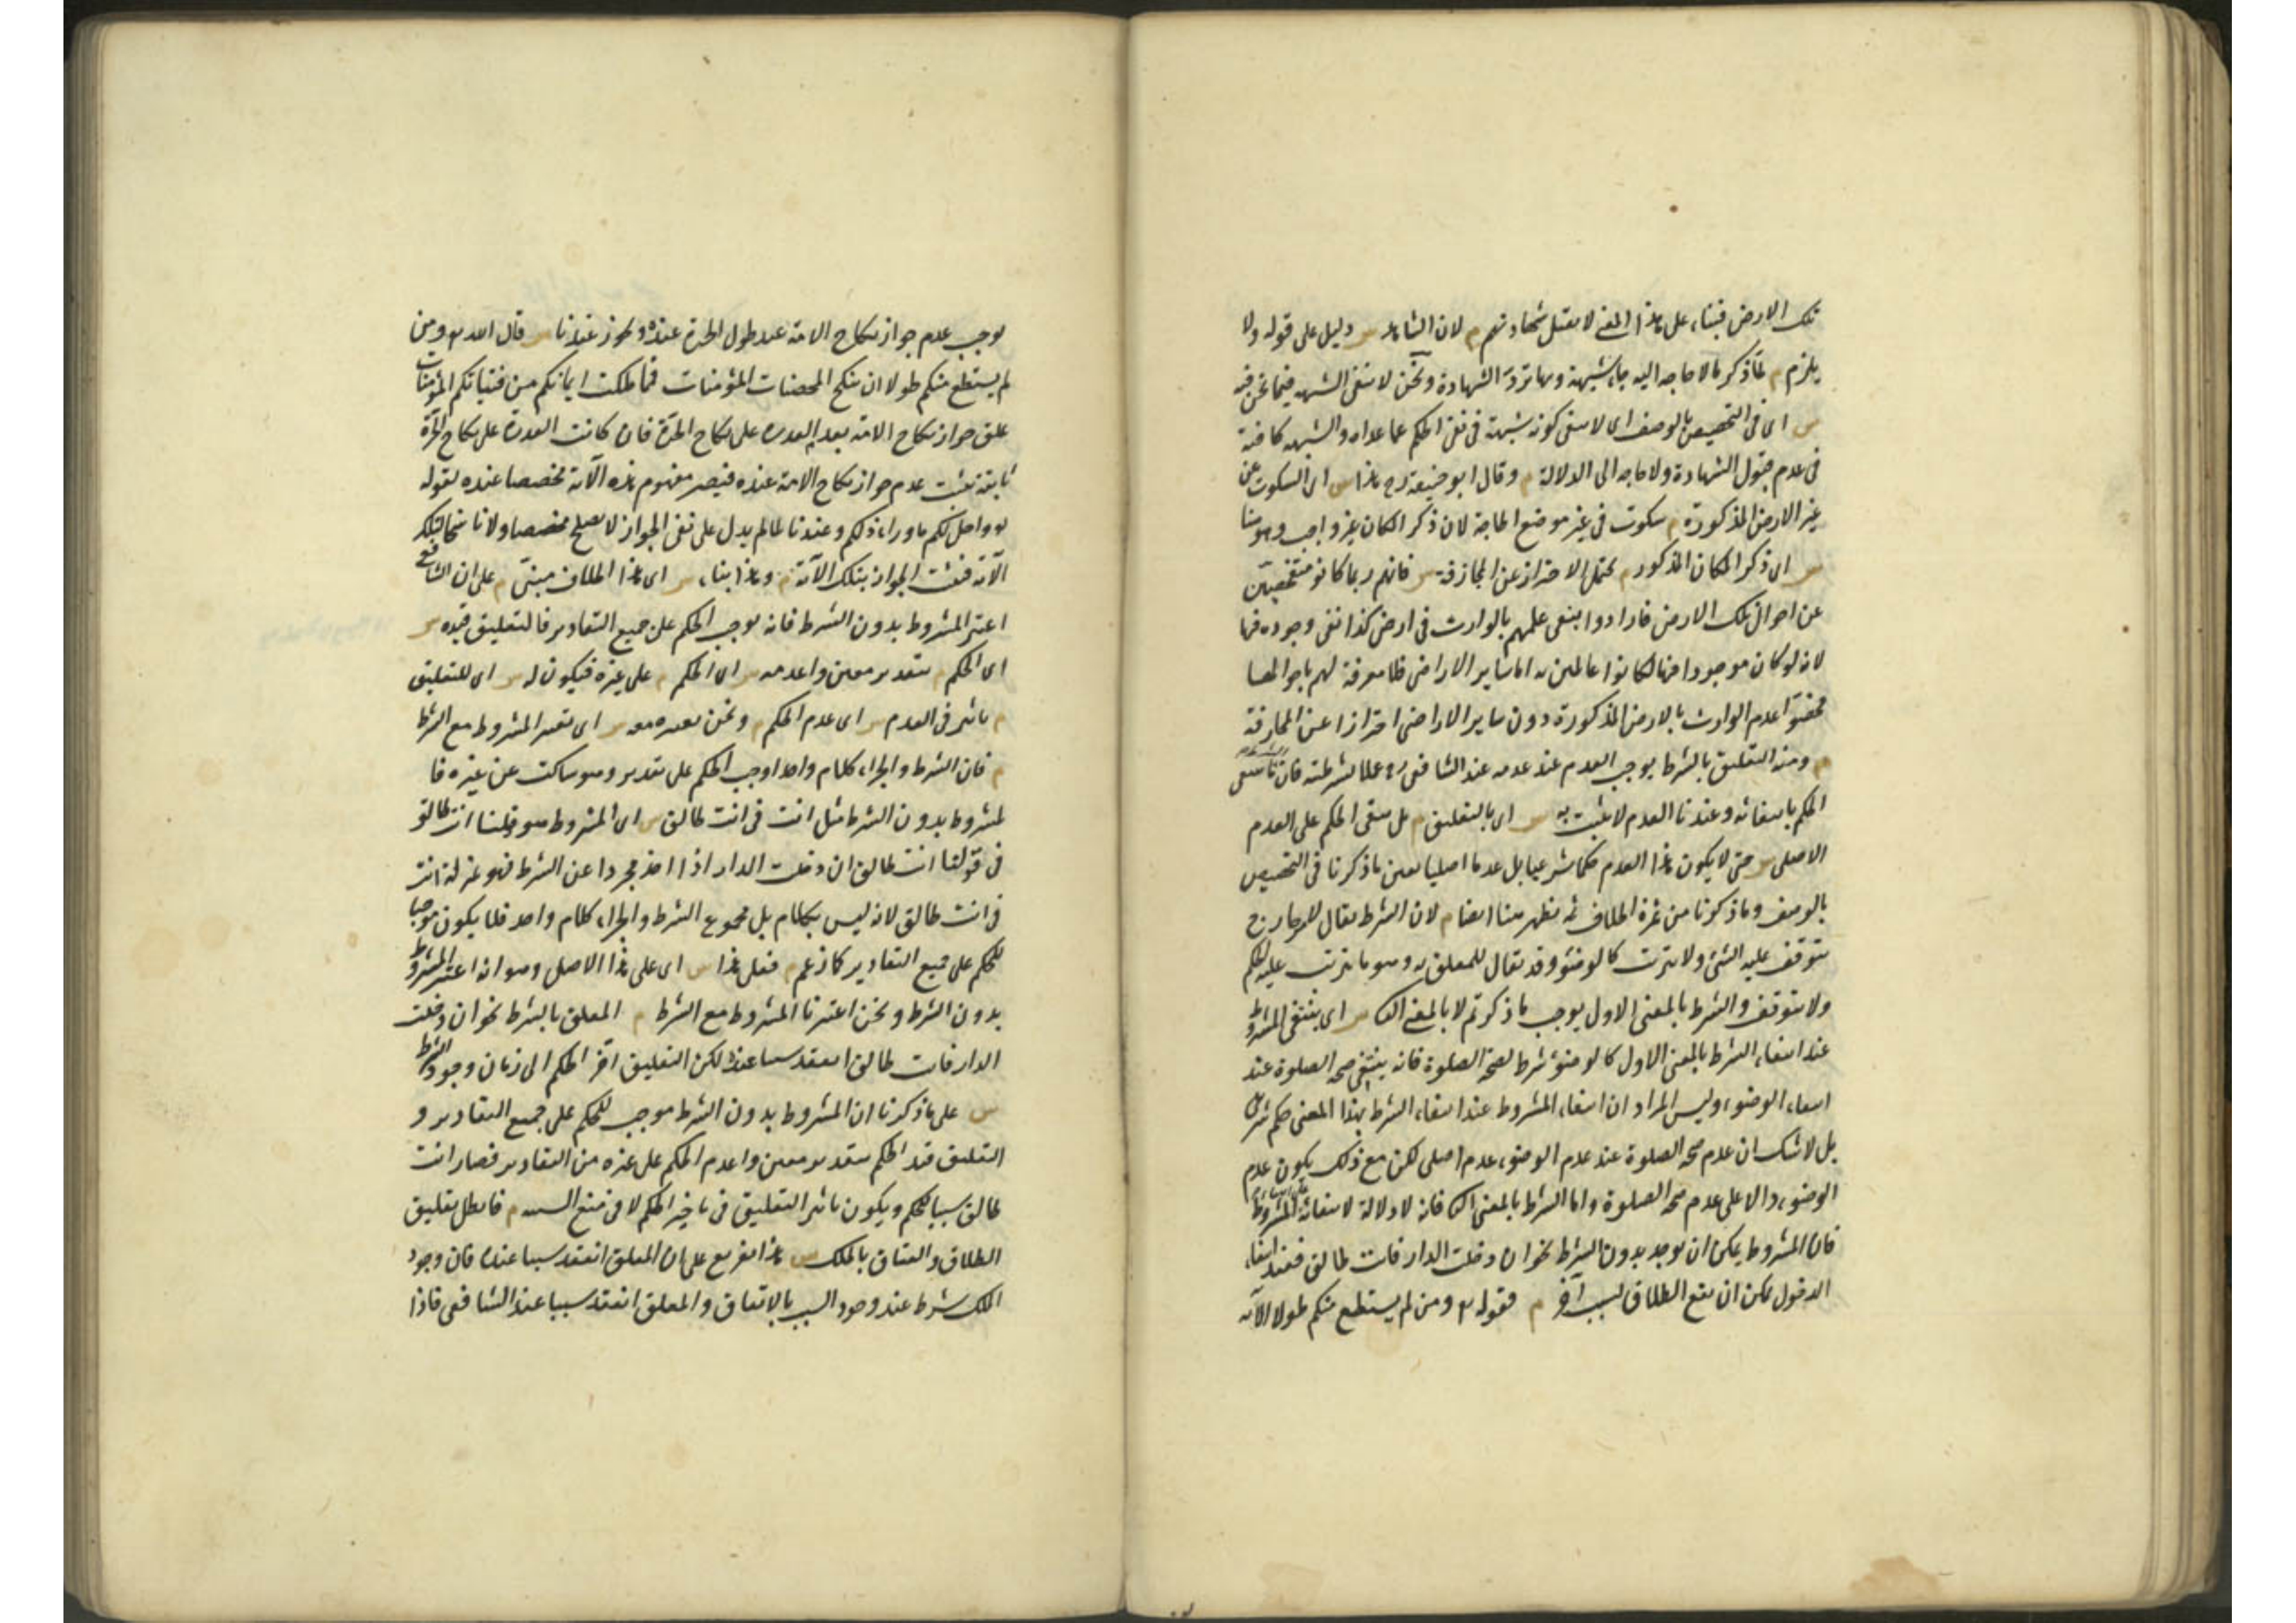 تلك الارض فبناء على هذا المعنى لا تقبل شهادتهم م لان الشاهد س دليل على قوله ولا
يلزم م لما ذكر ما لا حاجه اليه جاء شبهة وبها ترد الشهادة ونحن لا ننفى الشبهه فيما نحن فيه
س اى فى التخصيص بالوصف اى لا ننفى كونه شبهة فى نفى الحكم عما عداه والشبهه كافية
فى عدم قبول الشهادة ولا حاجه الى الدلالة م وقال ابو حنيفة رح هذا س اى السكوت عن
غير الارض المذكورة م سكوت فى غير موضع الحاجة لان ذكر المكان غير واجب وهو هنا
س اى ذكر المكان المذكور م يحتمل الاحتراز عن المجازفة س فانهم ربما كانوا متفحصين
عن احوال تلك الارض فارادوا بنفى علمهم بالوارث فى ارض كذا نفى وجوده فيها
لانه لو كان موجودا فيها لكانوا عالمين به اما ساير الاراضى فلا معرفة لهم باحوالها
فخصوا عدم الوارث بالارض المذكورة دون ساير الاراضى احترازا عن المجازفة
م ومنه التعليق بالشرط يوجب العدم عند عدمه عند الشافعى ره عملا بشرطيته فان
الحكم بانتفائه وعندنا العدم لا يثبت به س اى بالتعليق م بل يبقى الحكم على العدم
الاصلى س حتى لا يكون هذا العدم حكما شرعيا بل عدما اصليا بعين ما ذكرنا فى التخصيص
بالوصف وما ذكرنا من ثمرة الخلاف ثمه يظهر هنا ايضا م لان الشرط يقال لامر خارج
يتوقف عليه الشئ ولا يترتب كالوضوء وقد يقال للمعلق به وهو ما يترتب عليه الحكم
ولا يتوقف والشرط بالمعنى الاول يوجب ما ذكرتم لا بالمعنى الثانى س اى ينتفى المشروط
عند انتفاء الشرط بالمعنى الاول كالوضوء شرط لصحة الصلوة فانه ينتفى صحه الصلوة عند
انتفاء الوضوء وليس المراد ان انتفاء المشروط عند انتفاء الشرط بهذا المعنى حكم شرعى
بل لا شك ان عدم صحه الصلوة عند عدم الوضوء عدم اصلى لكن مع ذلك يكون عدم
الوضوء دالا على عدم صحه الصلوة واما الشرط بالمعنى الثانى فانه لا دلالة لانتفائه المشروط
فان المشروط يمكن ان يوجد بدون الشرط نحو ان دخلت الدار فانت طالق فعند انتفاء
الدخول يمكن ان يقع الطلاق لسبب آخر م فقوله تع ومن لم يستطع منكم طولا الآيه
يوجب عدم جواز نكاح الامة عند طول الحرة عنده ويجوز عندنا س قال الله تع ومن
لم يستطع منكم طولا ان ينكح المحصنات المؤمنات فما ملكت ايمانكم من فتياتكم المؤمنات
علق جواز نكاح الامه بعدم القدرة على نكاح الحرة فان كانت القدرة على نكاح الحرة
ثابتة يثبت عدم جواز نكاح الامة عنده فيصير مفهوم هذه الآية مخصصا عنده لقوله
تع واحل لكم ما وراء ذلكم وعندنا لما لم يدل على نفى الجواز لا يصلح مخصصا ولا ناسخا لتلك
الآية فيثبت الجواز بتلك الآية م وهذا بناء س اى هذا الخلاف مبنى م على ان الشافعى
اعتبر المشروط بدون الشرط فانه يوجب الحكم على جميع التقادير فالتعليق قيده س
اى الحكم م بتقدير معين واعدمه س اى الحكم م على غيره فيكون له س اى للتعليق
م تاثير فى العدم س اى عدم الحكم م ونحن نعتبره معه س اى نعتبر المشروط مع الشرط
م فان الشرط والجزاء كلام واحد اوجب الحكم على تقدير وهو ساكت عن غيره فا
لمشروط بدون الشرط مثل انت فى انت طالق س اى المشروط هو قولنا انت طالق
فى قولنا انت طالق ان دخلت الدار اذا اخذ مجردا عن الشرط فهو بمنزلة انت
فى انت طالق لانه ليس بكلام بل مجموع الشرط والجزاء كلام واحد فلا يكون موجبا
للحكم على جميع التقادير كما زعم م فعلى هذا س اى على هذا الاصل وهو انه اعتبر المشروط
بدون الشرط ونحن اعتبرنا المشروط مع الشرط م المعلق بالشرط نحو ان دخلت
الدار فانت طالق انعقد سببا عنده لكن التعليق اخر الحكم الى زمان وجود الشرط
س على ما ذكرنا ان المشروط بدون الشرط موجب للحكم على جميع التقادير و
التعليق قيد الحكم بتقدير معين واعدم الحكم على غيره من التقادير فصار انت
طالق سببا للحكم ويكون تاثير التعليق فى تاخير الحكم لا فى منع السبب م فابطل تعليق
الطلاق والعتاق بالملك س هذا تفريع على ان المعلق انعقد سببا عنده فان وجود
الملك شرط عند وجود السبب بالاتفاق والمعلق انعقد سببا عند الشافعى فاذا